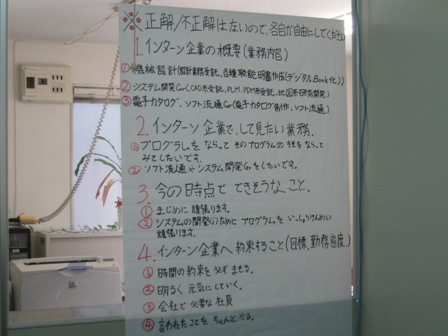 ※ 正解/不正解はないので、各自が自由にしてください
1. インターン企業の概要(業務内容)
① 機械設計(設計業務受託、各種取説明書作成(デジタルBook化))
② システム開発Gr(CAD系受託、PLM、PDM系受託、
③ 電子カタログ、ソフト流通Gr(電子カタログ制作、ソフト流通)
2. インターン企業で、して見たい業務.
① プログラムをならって そのプログラムの をならって
みてしたいです.
② ソフト流通やシステム開発Grをしたいです.
3. 今の時点で できそうな、こと.
① まじめに 頑張ります.
② システムの開発のために プログラムを いっしょうけんめい
頑張ります.
4. インターン企業へ 約束すること(目標、勤務態度)
① 時間の約束を必ず ませる.
② 明るく 元気にしていく.
③ 会社で 必要な 社員
④ 言われたことを ちゃんと やる.